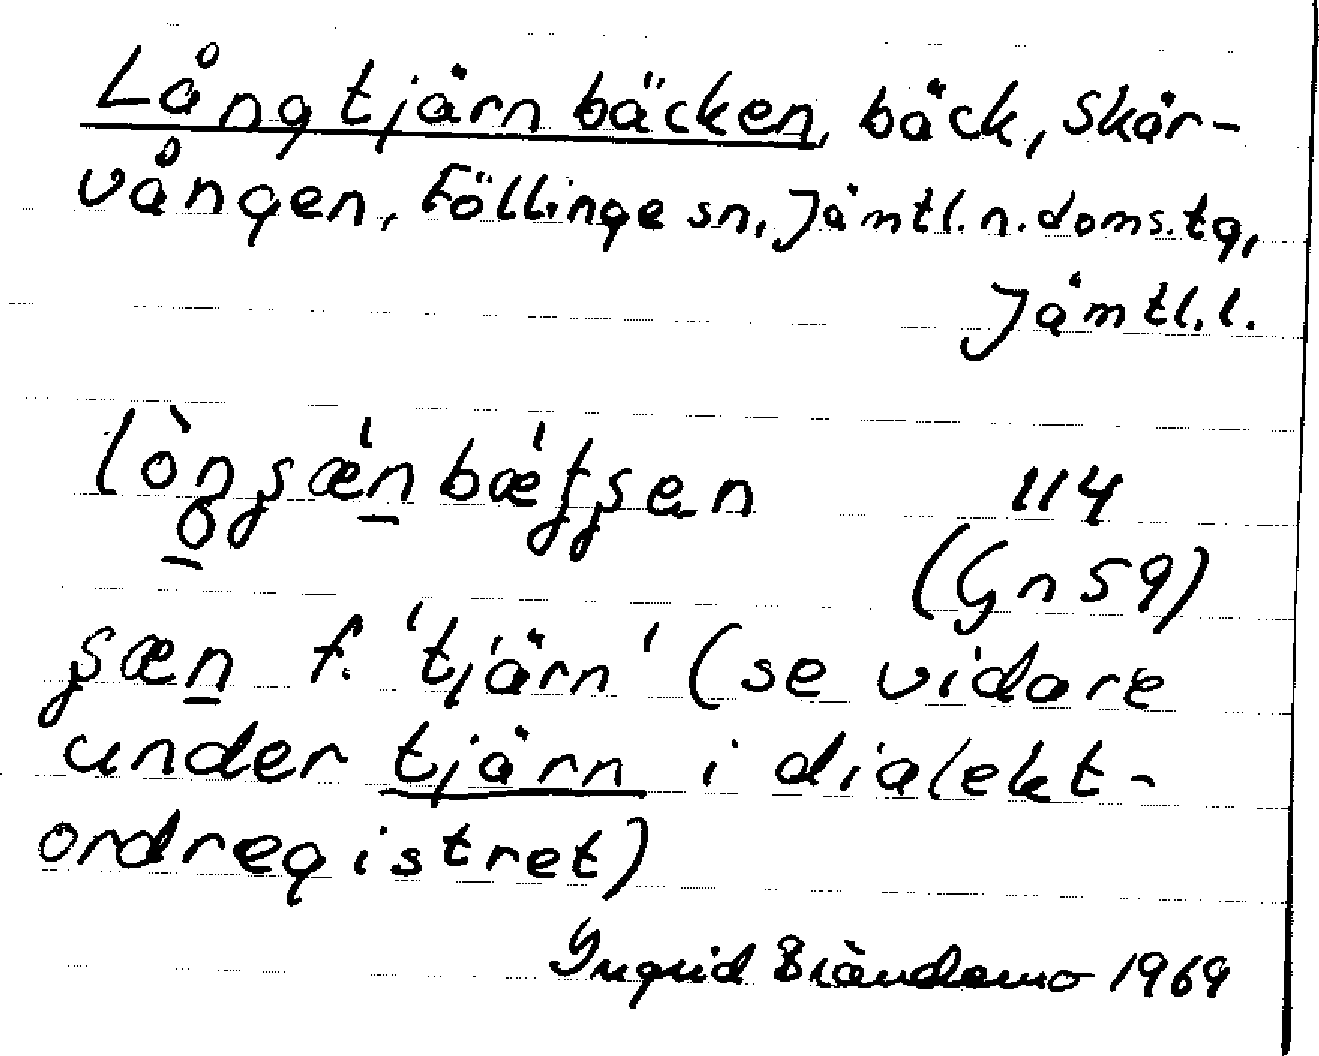 Långtjärnbäcken, bäck, Skär-
vången, Föllinge sn, Jämtl.n.doms.tg,
Jämtl.l.
114
(Gn 59)
f. 'tjärn' (se vidare
under tjärn i dialekt-
ordregistret)
Ingrid Brändemo 1969